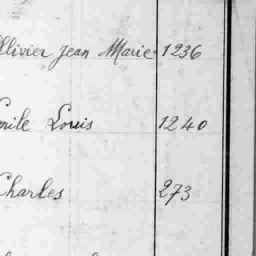 Ollivier Jean Marie 1236
Emile Louis 1240
Charles 273